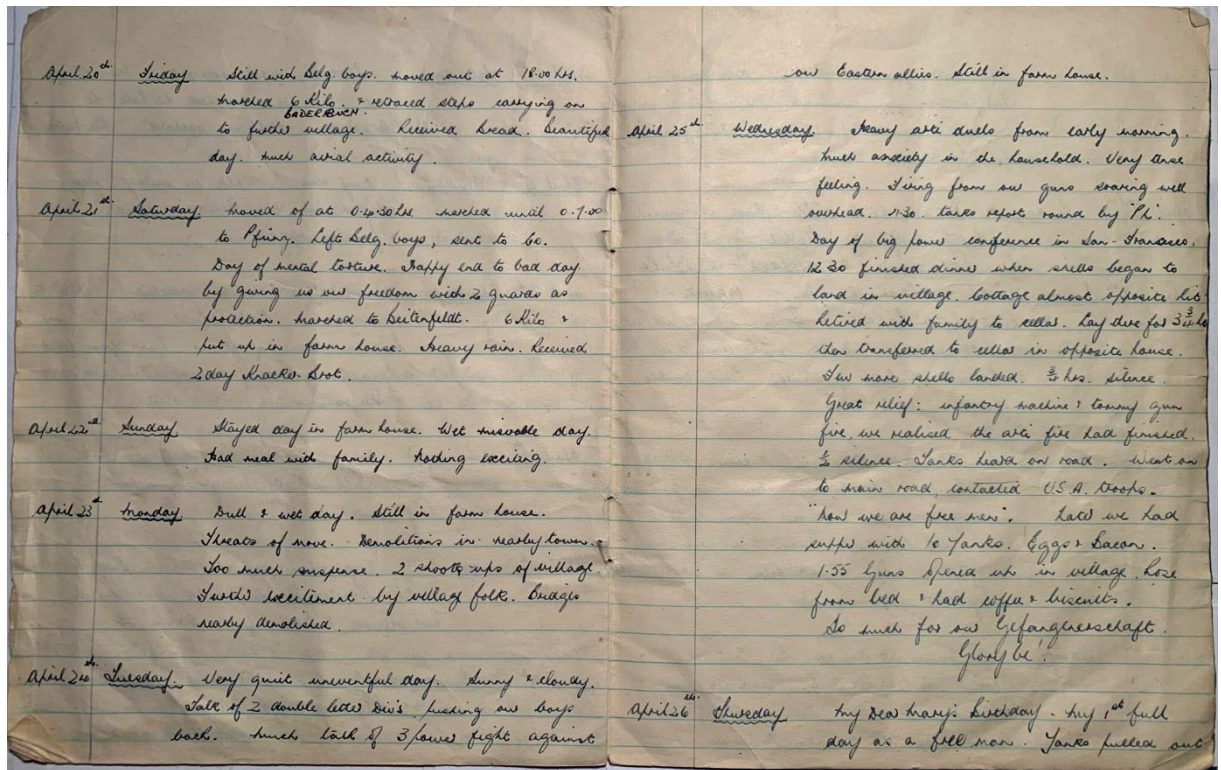 April 20th Friday Still with Belg. boys. Moved out at 18.00 hrs.
marched 6 Kilo. & retraced steps carrying on
BADERBUCH.
to further village. Received bread. Beautiful
day. Much aerial activity.
April 21st Saturday. Moved of at 0.4.30 hrs marched until 0.7.00
to Pfring. Left Belg. boys, sent to Co.
Day of mental torture. Happy end to bad day
by giving us our freedom with 2 guards as
protection. Marched to Deitenfeldt. 6 Kilo &
put up in farm house. Heavy rain. Received
2 day Knacker-Brot.
April 22nd Sunday Stayed day in farm house. Wet miserable day.
Had meal with family. Nothing exciting.
April 23rd Monday Dull & wet day. Still in farm house.
Threats of move. Demolitions in nearby town.
Too much suspense. 2 shoots ups of village.
Further excitement by village folk. Bridges
nearby demolished.
April 24th Tuesday. Very quiet uneventful day. Sunny & cloudy.
Talk of 2 double letter Div's pushing our boys
back. Much talk of 3 power fight against
our Eastern allies. Still in farm house.
April 25th Wednesday Heavy arti duels from early morning.
Much anxiety in the household. Very tense
feeling. Firing from our guns soaring well
overhead. 11.30. Tanks report round by "Ph".
Day of big power conference in San-Francisco.
12.30 finished dinner when shells began to
land in village. Cottage almost opposite hit.
Retired with family to cellar. Lay there for 3¾ hr
then transferred to cellar in opposite house.
Few more shells landed. ¾ hrs. silence.
Great relief: infantry machine & tommy gun
fire, we realised the arti fire had finished.
½ silence. Tanks heard on road. Went on
to main road, contacted U.S.A. troops.
"Now we are free men". Later we had
supper with 10 Yanks. Eggs & Bacon.
1.55 Guns opened up in village. Rose
from bed & had coffee & biscuits.
So much for our Gefangnerschaft.
Glory be!
April 26th Thursday My Dear Mary's Birthday. My 1st full
day as a free man. Yanks pulled out